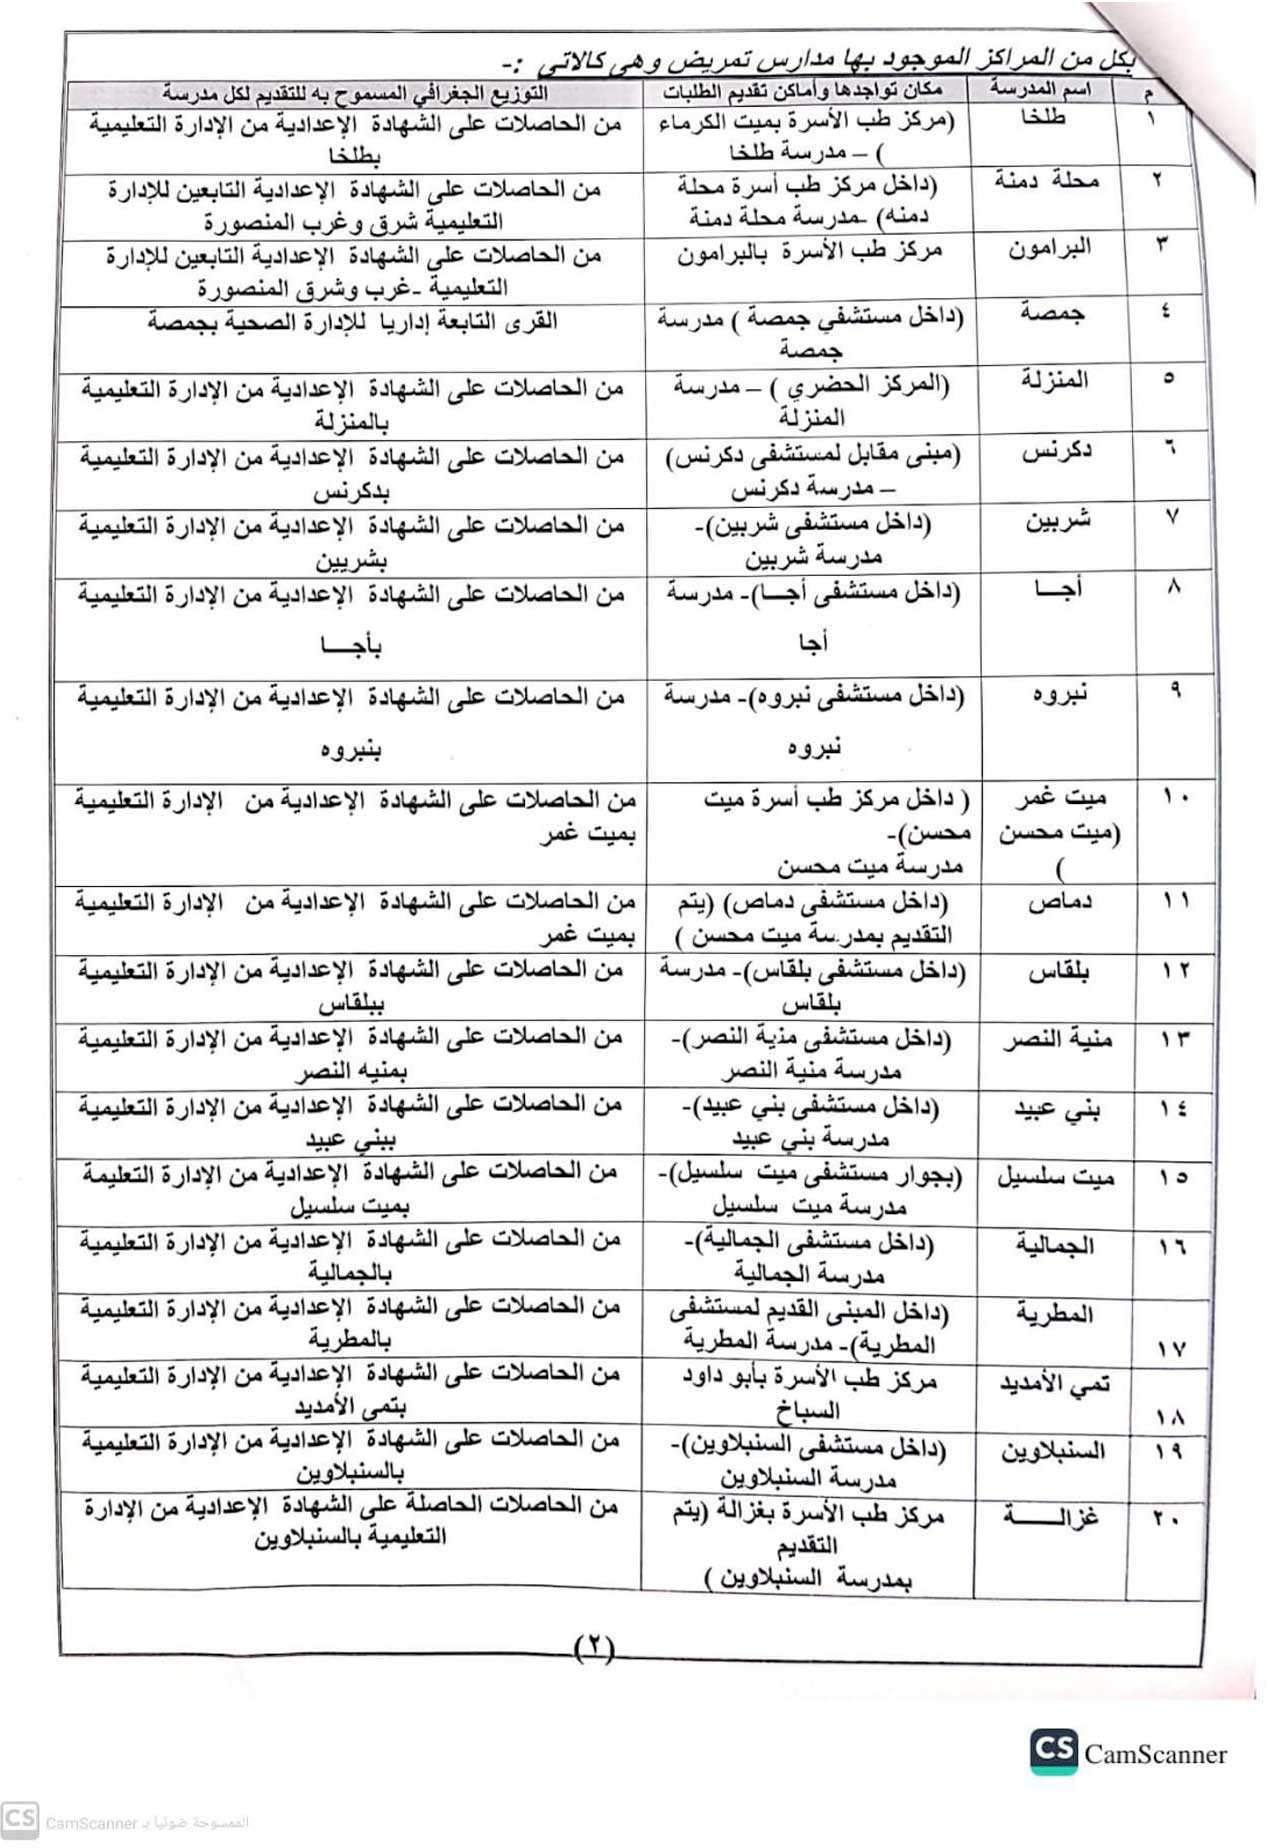 بكل من المراكز الموجود بها مدارس تمريض وهى كالاتى :-
م اسم المدرسة مكان تواجدها وأماكن تقديم الطلبات التوزيع الجغرافي المسموح به للتقديم لكل مدرسة
١ طلخا (مركز طب الأسرة بميت الكرماء من الحاصلات على الشهادة الإعدادية من الإدارة التعليمية
) – مدرسة طلخا بطلخا
٢ محلة دمنة (داخل مركز طب أسرة محلة من الحاصلات على الشهادة الإعدادية التابعين للإدارة
دمنه) -مدرسة محلة دمنة التعليمية شرق وغرب المنصورة
٣ البرامون مركز طب الأسرة بالبرامون من الحاصلات على الشهادة الإعدادية التابعين للإدارة
التعليمية -غرب وشرق المنصورة
٤ جمصة (داخل مستشفي جمصة ) مدرسة القرى التابعة إداريا للإدارة الصحية بجمصة
جمصة
٥ المنزلة (المركز الحضري ) – مدرسة من الحاصلات على الشهادة الإعدادية من الإدارة التعليمية
المنزلة بالمنزلة
٦ دكرنس (مبنى مقابل لمستشفى دكرنس) من الحاصلات على الشهادة الإعدادية من الإدارة التعليمية
– مدرسة دكرنس بدكرنس
٧ شربين (داخل مستشفى شربين)- من الحاصلات على الشهادة الإعدادية من الإدارة التعليمية
مدرسة شربين بشربين
٨ أجــا (داخل مستشفى أجــا)- مدرسة من الحاصلات على الشهادة الإعدادية من الإدارة التعليمية
أجا بأجــا
٩ نبروه (داخل مستشفى نبروه)- مدرسة من الحاصلات على الشهادة الإعدادية من الإدارة التعليمية
نبروه بنبروه
١٠ ميت غمر ( داخل مركز طب أسرة ميت من الحاصلات على الشهادة الإعدادية من الإدارة التعليمية
(ميت محسن محسن)- بميت غمر
) مدرسة ميت محسن
١١ دماص (داخل مستشفى دماص) (يتم من الحاصلات على الشهادة الإعدادية من الإدارة التعليمية
التقديم بمدرسة ميت محسن ) بميت غمر
١٢ بلقاس (داخل مستشفى بلقاس)- مدرسة من الحاصلات على الشهادة الإعدادية من الإدارة التعليمية
بلقاس ببلقاس
١٣ منية النصر (داخل مستشفى منية النصر)- من الحاصلات على الشهادة الإعدادية من الإدارة التعليمية
مدرسة منية النصر بمنيه النصر
١٤ بني عبيد (داخل مستشفى بني عبيد)- من الحاصلات على الشهادة الإعدادية من الإدارة التعليمية
مدرسة بني عبيد ببني عبيد
١٥ ميت سلسيل (بجوار مستشفى ميت سلسيل)- من الحاصلات على الشهادة الإعدادية من الإدارة التعليمة
مدرسة ميت سلسيل بميت سلسيل
١٦ الجمالية (داخل مستشفى الجمالية)- من الحاصلات على الشهادة الإعدادية من الإدارة التعليمية
مدرسة الجمالية بالجمالية
المطرية (داخل المبنى القديم لمستشفى من الحاصلات على الشهادة الإعدادية من الإدارة التعليمية
١٧ المطرية)- مدرسة المطرية بالمطرية
تمي الأمديد مركز طب الأسرة بأبو داود من الحاصلات على الشهادة الإعدادية من الإدارة التعليمية
١٨ السباخ بتمى الأمديد
١٩ السنبلاوين (داخل مستشفى السنبلاوين)- من الحاصلات على الشهادة الإعدادية من الإدارة التعليمية
مدرسة السنبلاوين بالسنبلاوين
٢٠ غزالــــة مركز طب الأسرة بغزالة (يتم من الحاصلات الحاصلة على الشهادة الإعدادية من الإدارة
التقديم التعليمية بالسنبلاوين
بمدرسة السنبلاوين )
(٢)
CS CamScanner
CS CamScanner الممسوحة ضوئيا بـ